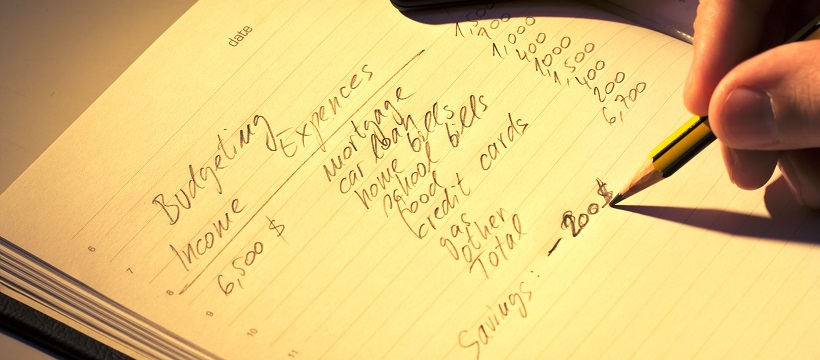 date
Budgeting
Income Expences
6,500 $
mortgage
car loan
home bills
school bills
food
credit cards
gas
other
Total
1,000
400
1000
200
6,700
Savings: - 200$
6
7
8
9
10
11